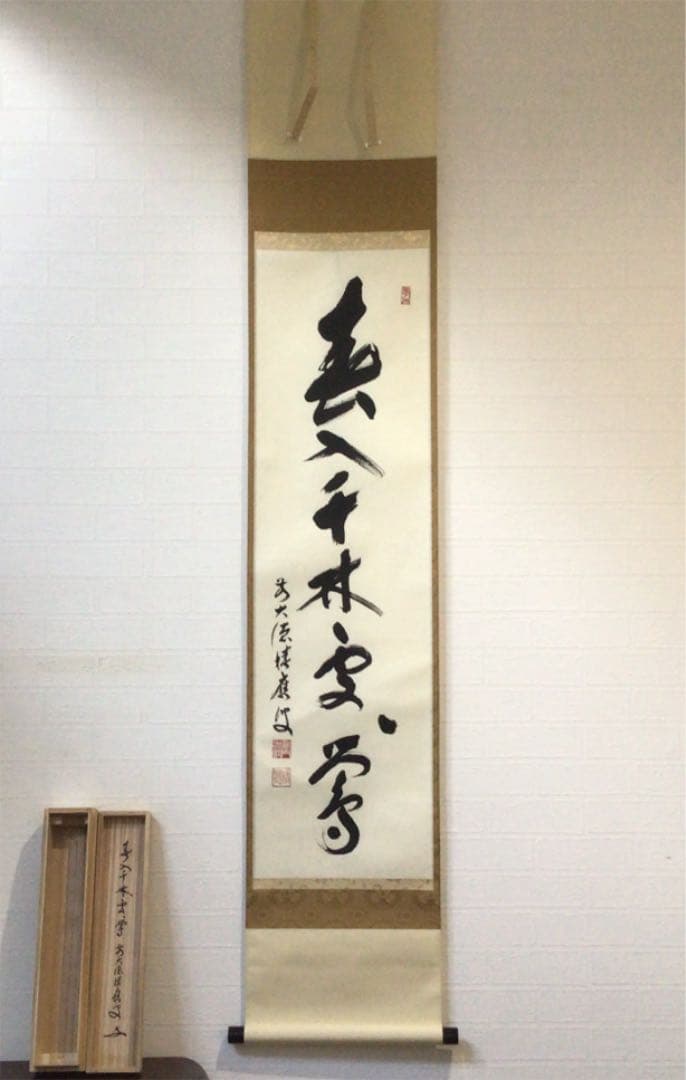 春入千林處々鶯
前大徳積應叟
春入千林處々鶯 前大徳積應叟